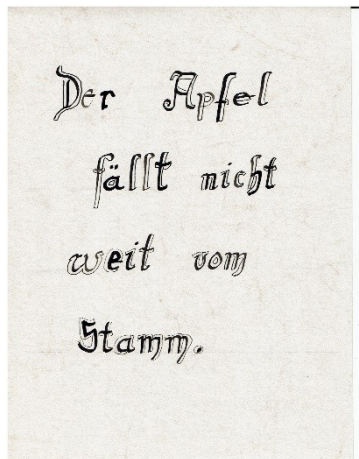 Der Apfel
fällt nicht
weit vom
Stamm.